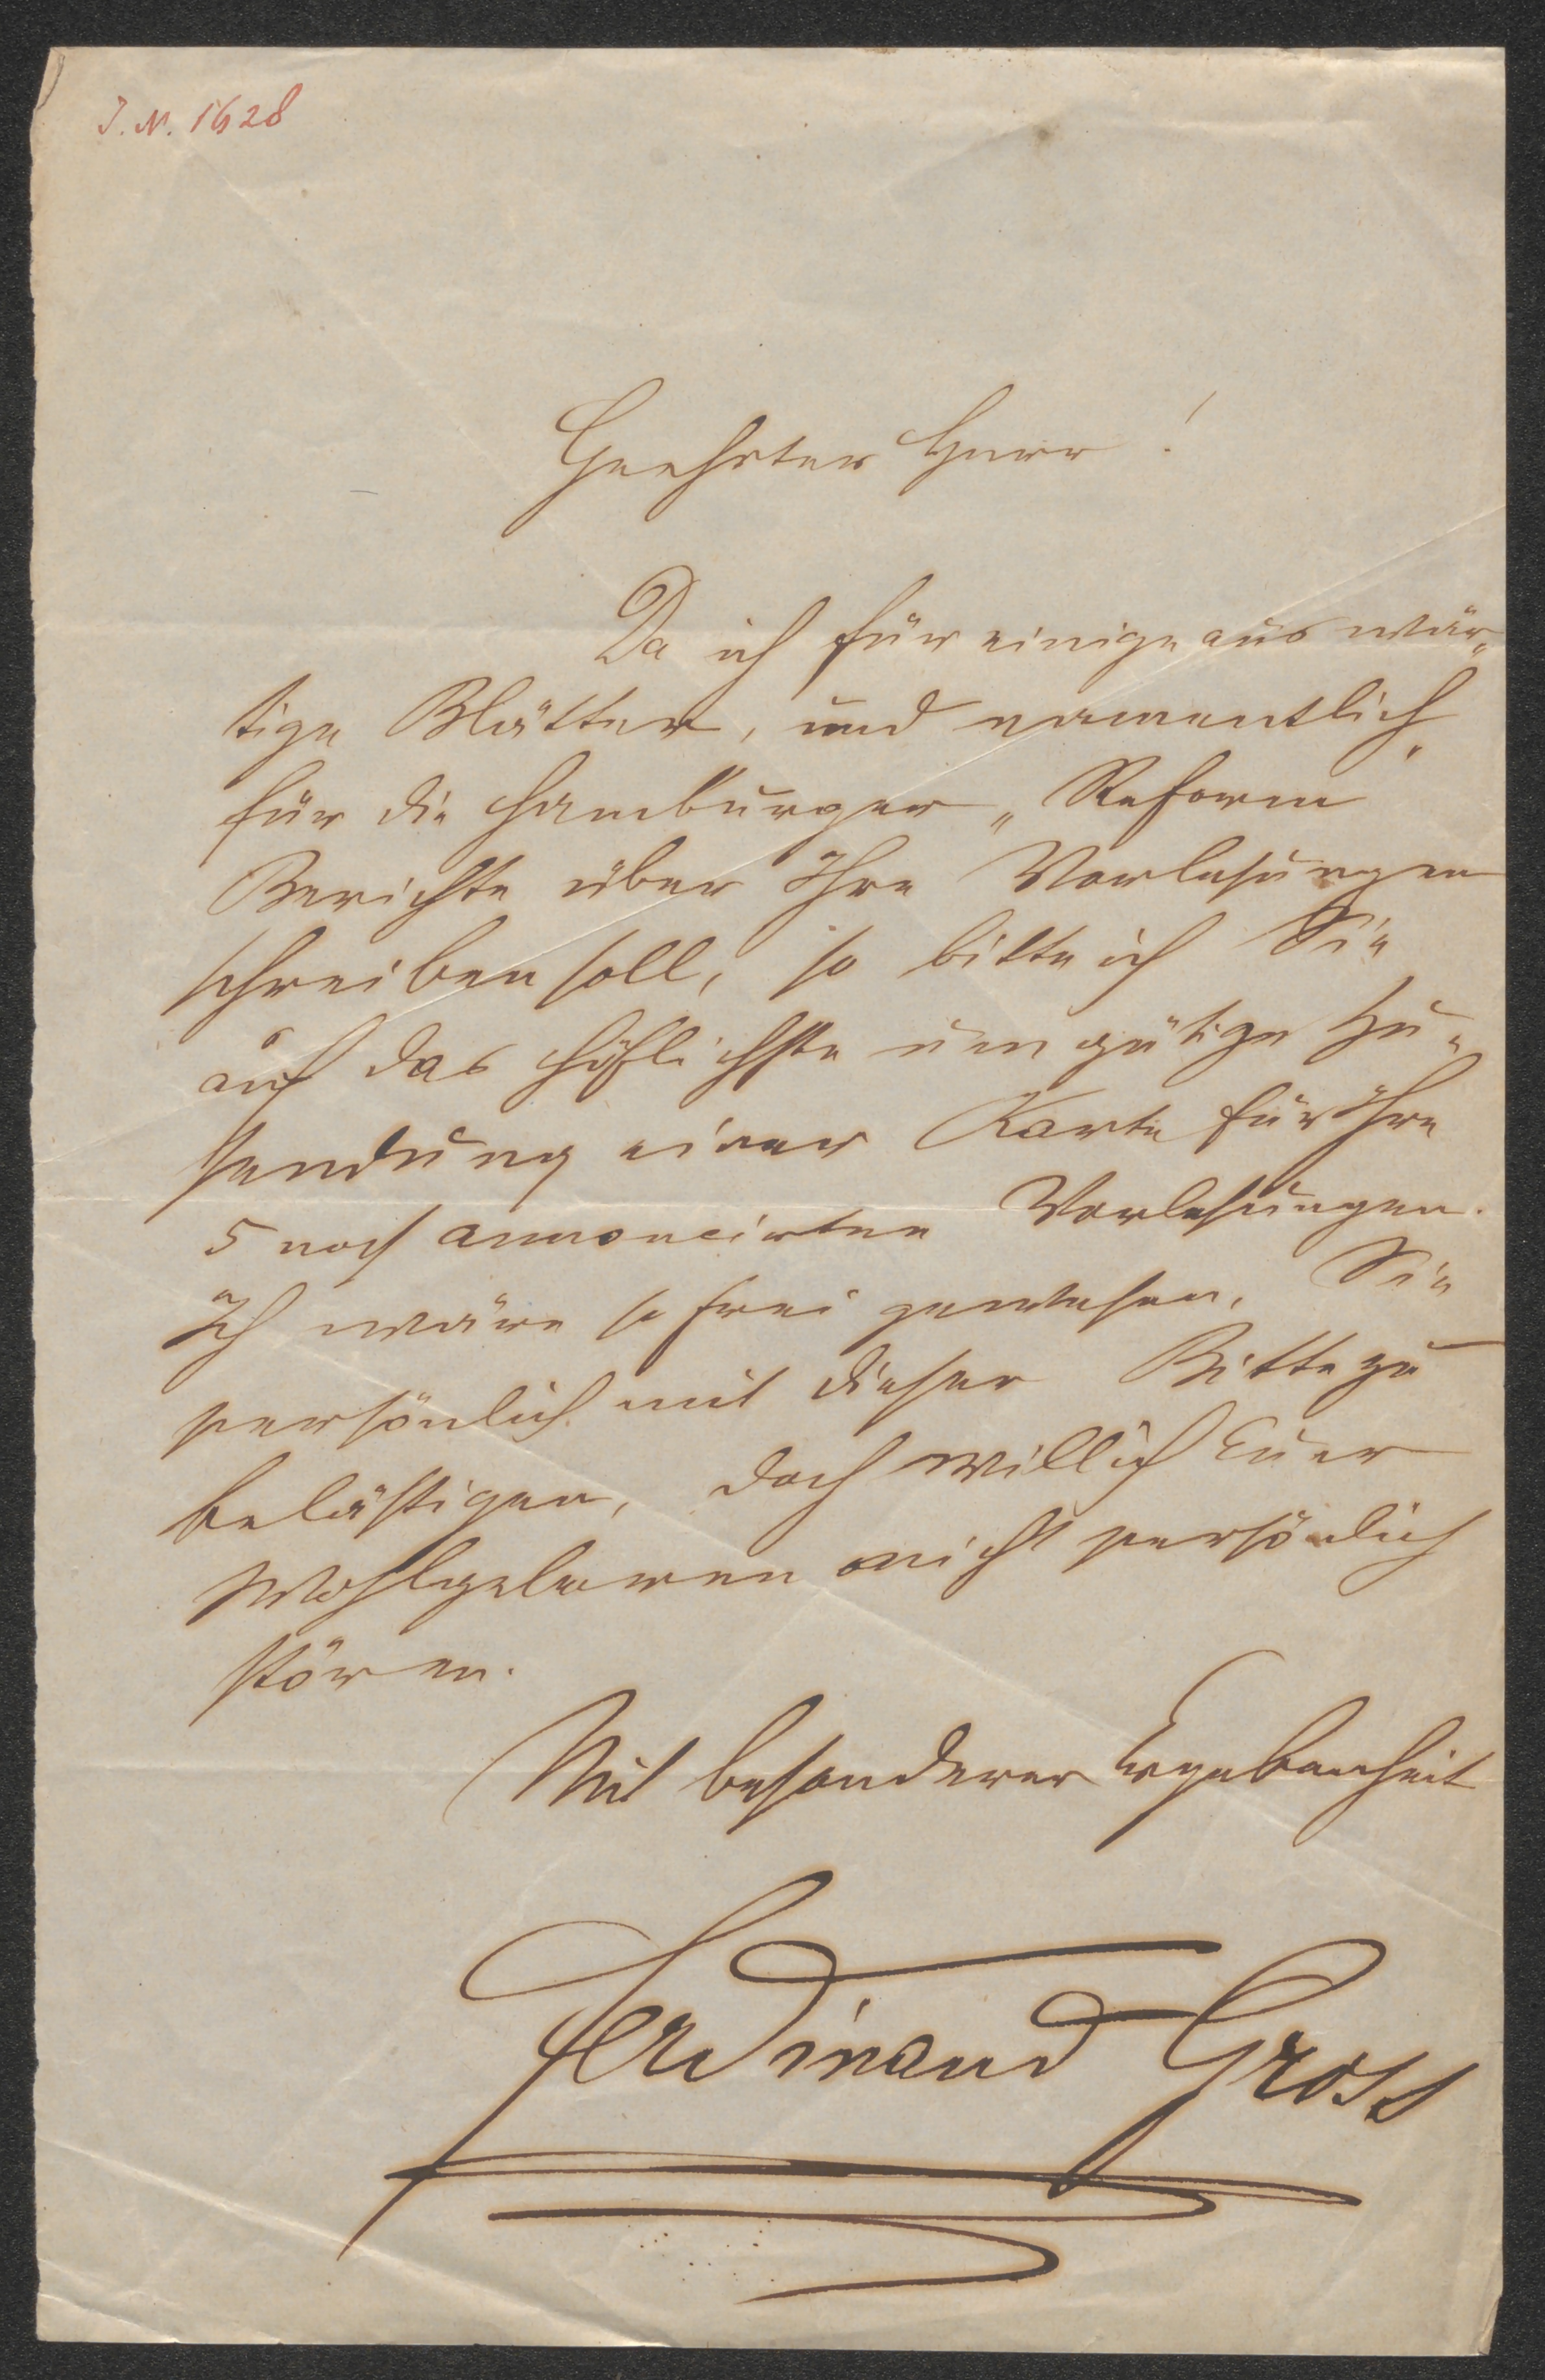 J. N. 1628
Geehrter Herr !
Da ich für einige auswär-
tige Blätter, und namentlich
für die Hamburger „Reform"
Berichte über Ihre Vorlesungen
schreiben soll, so bitte ich Sie
auf das höflichste um gütige Zu-
sendung einer Karte für Ihre
5 noch annoncirten Vorlesungen.
Ich wäre so frei gewesen, Sie
persönlich mit dieser Bitte zu
belästigen, doch will ich Euer
Wohlgeboren nicht persönlich
stören.
Mit besonderer Ergebenheit
Ferdinand Gross